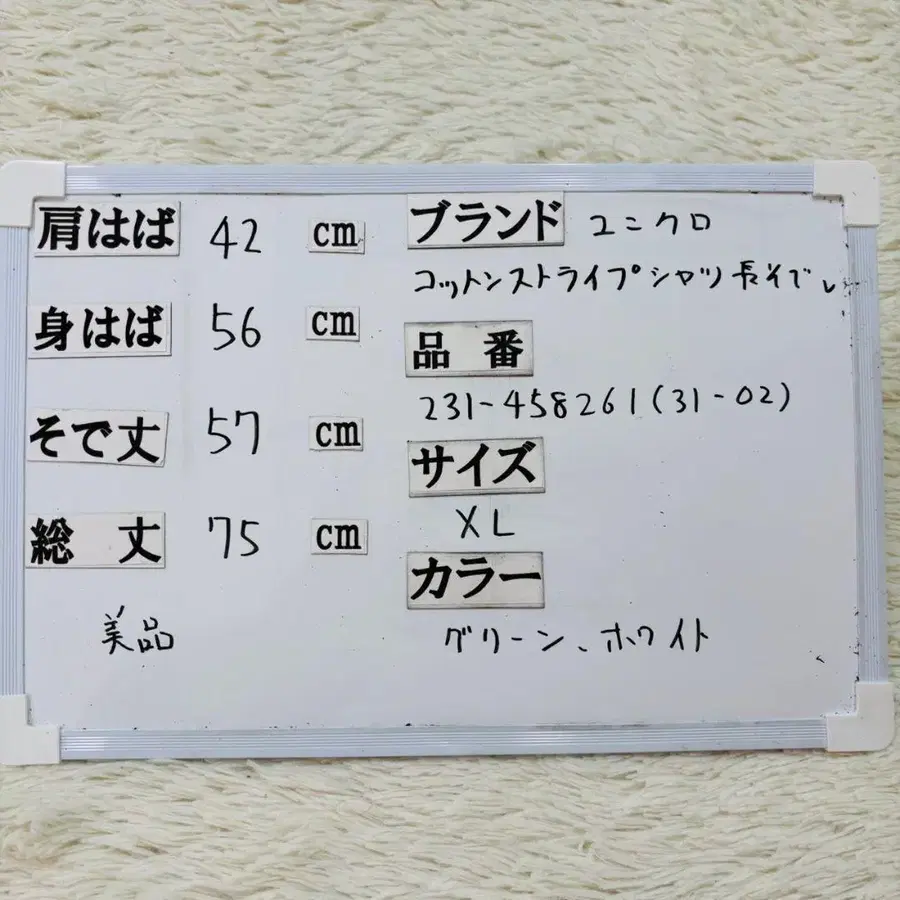 肩はば 42 cm
身はば 56 cm
そで丈 57 cm
総丈 75 cm
美品
ブランド ユニクロ
コットンストライプシャツ長そで
品番
231-458261(31-02)
サイズ
XL
カラー
グリーン、ホワイト